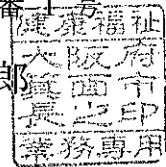 番1号
郎
健康福祉
大阪府
箕面市
長之印
業務専用